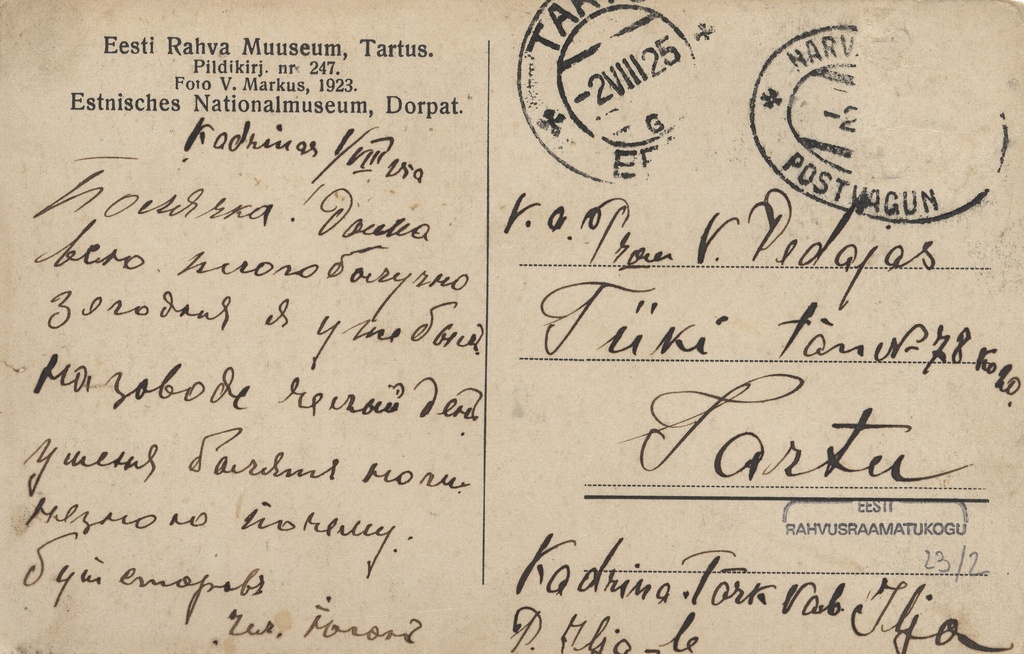 Eesti Rahva Muuseum, Tartus.
Pildikirj. nr 247.
Foto V. Markus, 1923.
Estnisches Nationalmuseum, Dorpat.
Kadrinas 1/VIII 25a
доехала
всю благополучно
зегодня я уже была
на заводе целый день
у меня балятя ноги
незною почему.
буть старовъ
Цел.
TARTU
-2VIII25
G
EE
NARV
-2
POSTVAGUN
V. a. Prou V. Pedajas
Tiiki tän № 78 ko 20.
Tartu
EESTI
RAHVUSRAAMATUKOGU
23/2
Kadrina. Tark vab Ilja
P. Ilja-le